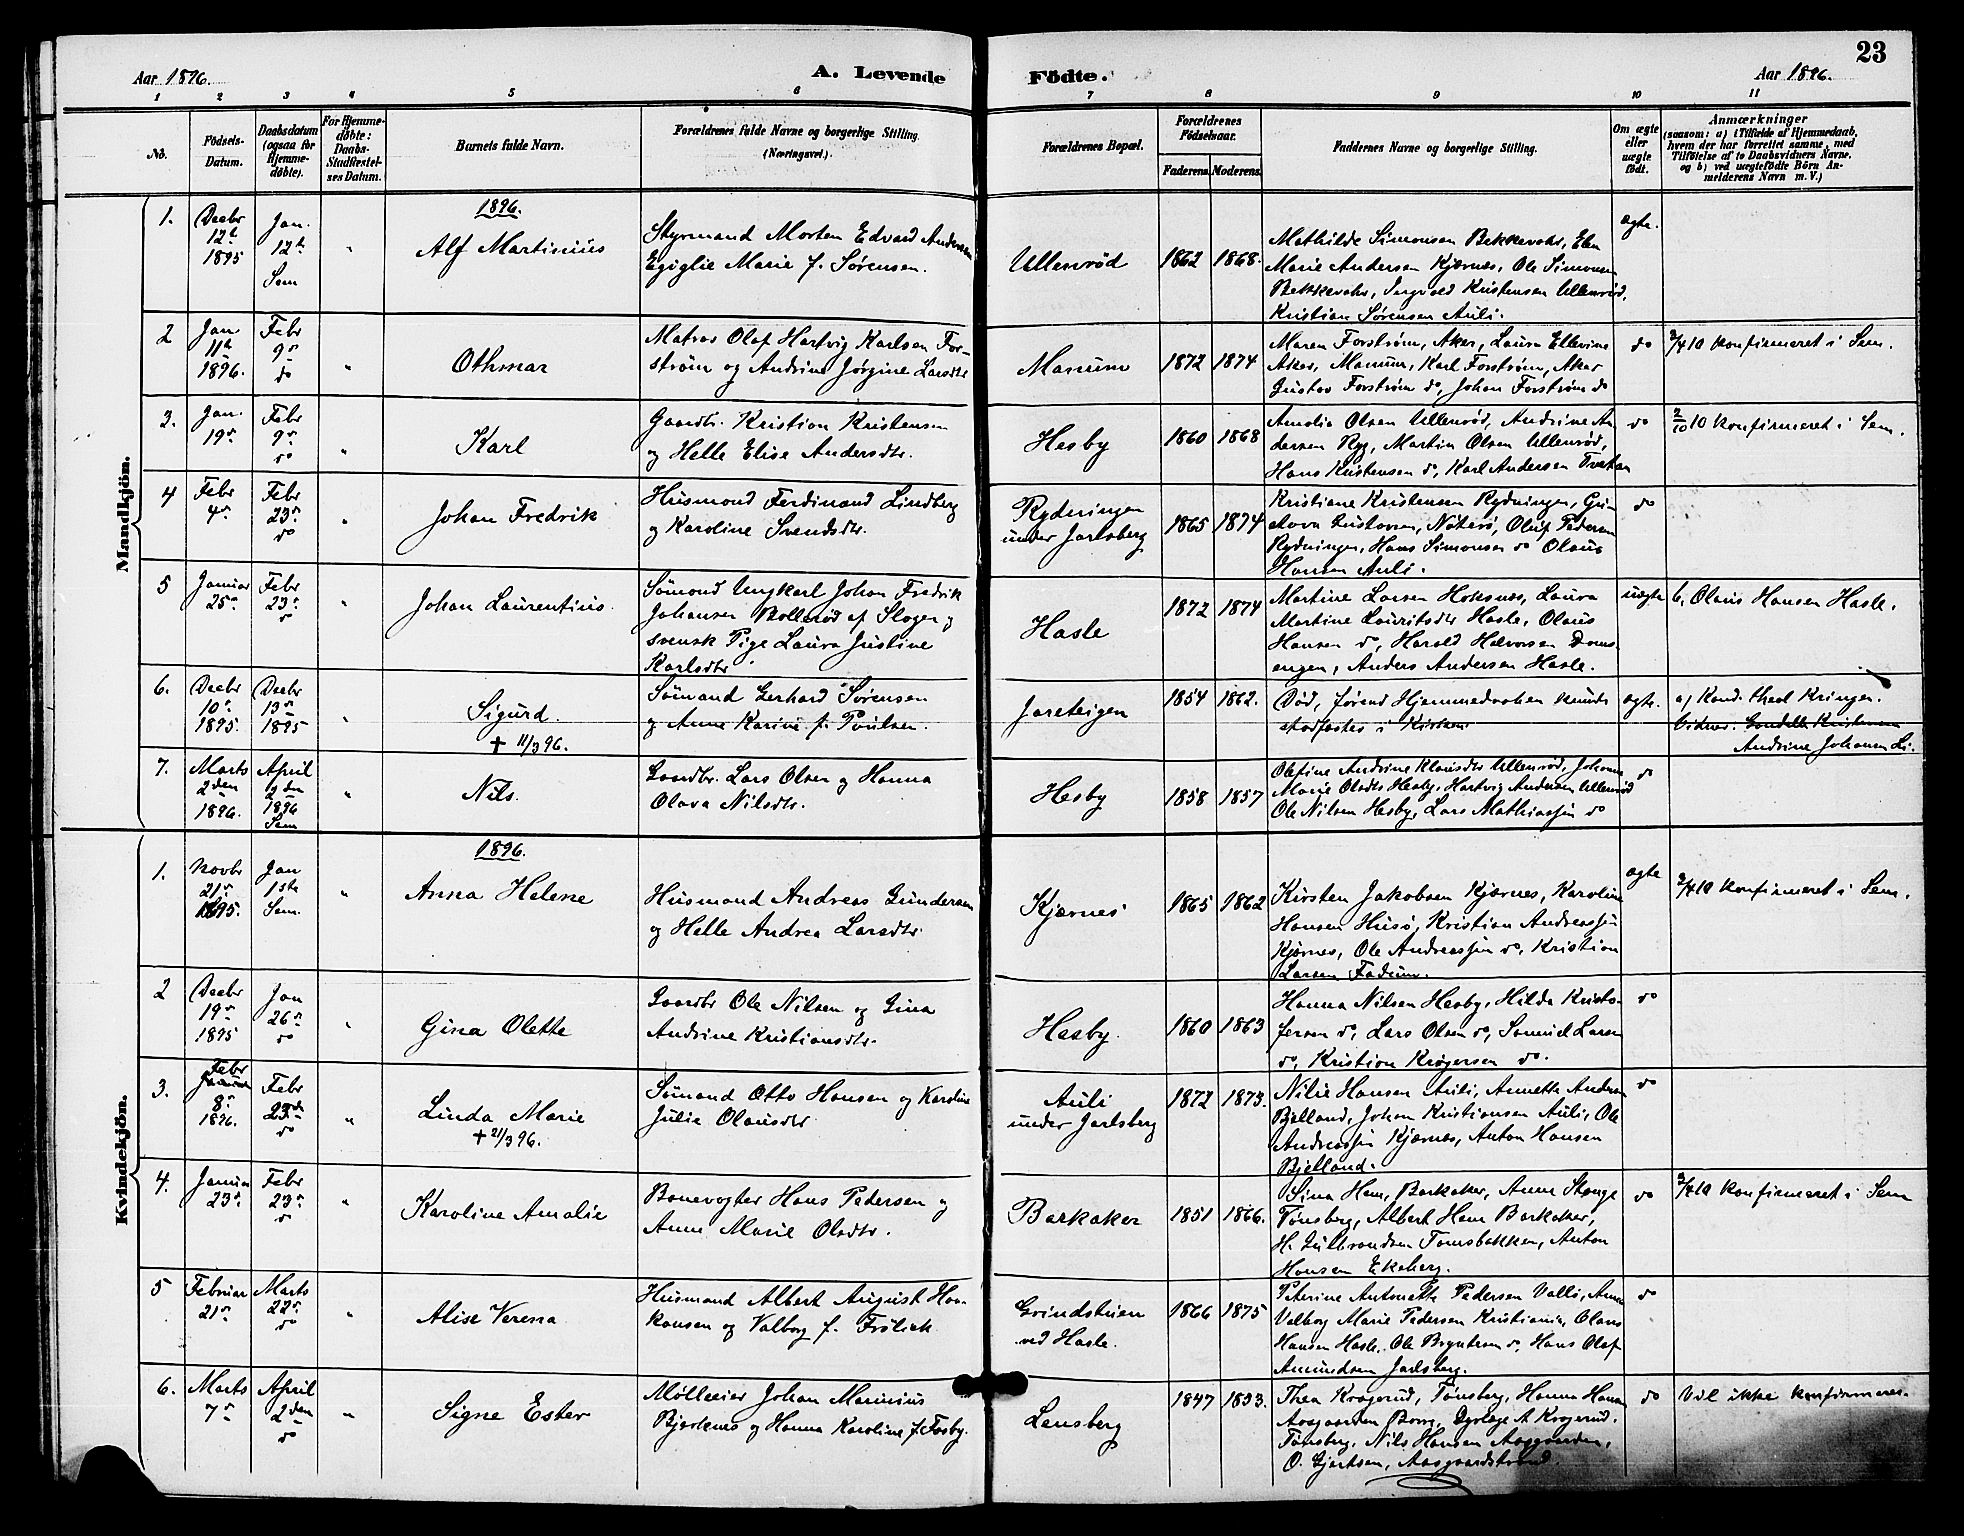 Aar 1896.
A. Levende
Födte.
Aar 1896.
23
1 2 3 4 5 6 7 8 9 10 11
No.
Födsels-
Datum.
Daabsdatum
(ogsaa for
Hjemme-
døbte).
For Hjemme-
døbte:
Daabs-
Stadfæstel-
ses Datum.
Barnets fulde Navn.
Forældrenes fulde Navne og borgerlige Stilling.
(Næringsvei.)
Forældrenes Bopæl.
Forældrenes
Födselsaar.
Faderens. Moderens.
Faddernes Navne og borgerlige Stilling.
Om ægte
eller
uægte
födt.
Anmærkninger
(saasom: a) i Tilfælde af Hjemmedaab,
hvem der har forrettet samme, med
Tilføielse af to Daabsvidners Navne,
og b) ved uægtefödte Börn An-
melderens Navn m. V.)
Mandkjön.
1896.
1.
Decbr
12te
1895
Jan.
12te
Sem
"
Alf Martinius
Styrmand Morten Edvard Andersen
Egiglie Marie f. Sørensen.
Ullenrød
1862
1868.
Mathilde Simonsen Bekkevahr,
Marie Andersen Kjærnes, Ole Simonsen
Bekkevahr, Ingvald Kristensen Ullenrød,
Kristian Sørensen Auli.
ægte.
2
Jan.
11te
1896.
Febr
9de
do
"
Othmar
Matros Olaf Hartvig Karlsen For-
strøm og Andrine Jørgine Larsdtr
Manum
1872
1874
Maren Forstrøm, Aker, Laura Ellevine
Aker, Manum, Karl Forstrøm, Aker
Gustav Forstrøm do, Johan Forstrøm do
do
2/410 konfirmeret i Sem.
3.
Jan.
19de
Febr
9de
do
"
Karl
Gaardbr. Kristian Kristensen
og Helle Elise Andersdtr.
Hesby
1860
1868
Amalia Olsen Ullenrød, Andrine An
dersen Ryg, Martin Olsen Ullenrød,
Hans Kristensen do, Karl Andersen Tveitan
do
2/10 10 konfirmeret i Sem.
4
Febr
4de
Febr
23de
do
"
Johan Fredrik
Husmand Ferdinand Lindberg
og Karoline Svendsdtr.
Rydningen
under Jarlsberg
1865
1874
Kristiane Kristensen Rydningen, Gu-
stava Gustavsen, Nøterø, Oluf Pedersen
Rydningen, Hans Simonsen do Olaus
Hansen Auli.
do
5
Januar
25de
Febr
23de
do
"
Johan Laurentius.
Sømand Ungkarl Johan Fredrik
Johansen Bollerød af Slagen og
svensk Pige Laura Justine
Karlsdtr.
Hasle
1872
1874
Martine Larsen Hoksnes, Laura
Martine Lauritsdtr Hasle, Olaus
Hansen do, Harald Halvorsen
engen, Anders Andersen Hasle.
uægte
b. Olaus Hansen Hasle.
6.
Decbr
10de
1895.
Decbr
13de
1895
"
Sigurd.
+ 11/3 96.
Sømand Gerhard Sørensen
og Anne Karine f. Poulsen.
Jareteigen
1854
1862.
Død, førend Hjemmedaaben kunde
stadfæstes i Kirken.
ægte.
a) Kand. theol Kringen.
Vidner.
Andrine Johansen Li.
7.
Marts
2den
1896.
April
2den
1896
Sem
"
Nils.
Gaardbr. Lars Olsen og Hanna
Olava Nilsdtr.
Hesby
1858
1857
Olefine Andrine Klausdtr Ullenrød, Johanne
Marie Olsdtr Hesby, Hartvig Andersen Ullenrød
Ole Nilsen Hesby, Lars Mathiassen do
do
Kvindekjön.
1896.
1.
Novbr
21de
1895.
Jan
1ste
Sem.
"
Anna Helene
Husmand Andreas Gundersen
og Helle Andrea Larsdtr.
Kjærnes
1865
1862
Kirsten Jakobsen Kjærnes, Karoline
Hansen Husø, Kristian Andreassen
Kjærnes, Ole Andreassen do, Kristian
Larsen Fadum.
ægte
2/410 konfirmeret i Sem.
2
Decbr
19de
1895
Jan
26de
do
"
Gina Olette
Gaardbr Ole Nilsen og Gina
Andrine Kristiansdtr.
Hesby.
1860
1863
Hanna Nilsen Hesby, Hilda Kristo-
fersen do, Lars Olsen do, Samuel Larsen
do, Kristian Krøgersen do.
do
3.
Febr
8de
1896.
Febr
23de
do
"
Linda Marie
+ 21/3 96.
Sømand Otto Hansen og Karoline
Julie Olausdtr
Auli
under Jarlsberg
1872
1873.
Nilie Hansen Auli, Annette Andersen
Bjelland, Johan Kristiansen Auli, Ole
Andreassen Kjærnes, Anton Hansen
Bjelland.
do
4.
Januar
23de
Febr
23de
do
"
Karoline Amalie
Banevogter Hans Pedersen og
Anne Marie Olsdtr.
Barkaker
1851
1866.
Sina Hem, Barkaker, Anne Stange
Tønsberg, Albert Hem Barkaker,
H. Gulbrandsen Tomsbakken, Anton
Hansen Ekeberg.
do
2/410 konfirmeret i Sem
5
Februar
21de
Marts
22de
do
"
Alise Verena
Husmand Albert August Haa-
konsen og Valborg f. Frölich
Grindstuen
ved Hasle.
1866
1875
Peterine Antonette Pedersen Valli, Anna
Valborg Marie Pedersen Kristiania, Olaus
Hansen Hasle, Ole Bryntesen do, Hans Olaf
Amundsen Jarlsberg.
do
6.
Marts
7de
April
2den
do
"
Signe Ester
Mølleeier Johan Marinius
Bjerknes og Hanna Karoline f. Fosby.
Lensberg
1847
1853.
Thea Krogerud, Tønsberg, Hanna Hansen
Aasgaarden Borre, Dyrlæge A Krogerud.
Tønsberg, Nils Hansen Aasgaarden,
O. Gjertsen, Aasgaardstrand.
do
Vil ikke konfirmeres.